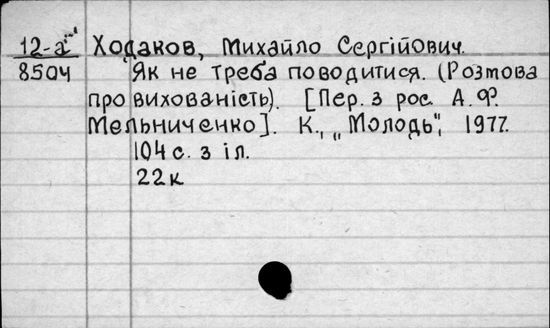 12-а Ходаков, Михайло Сергійович.
8504 Як не треба поводитися. (Розмова
про вихованість). [Пер. з рос. А. Ф.
Мельниченко]. К., „Молодь", 1977.
104 с. з іл.
22к